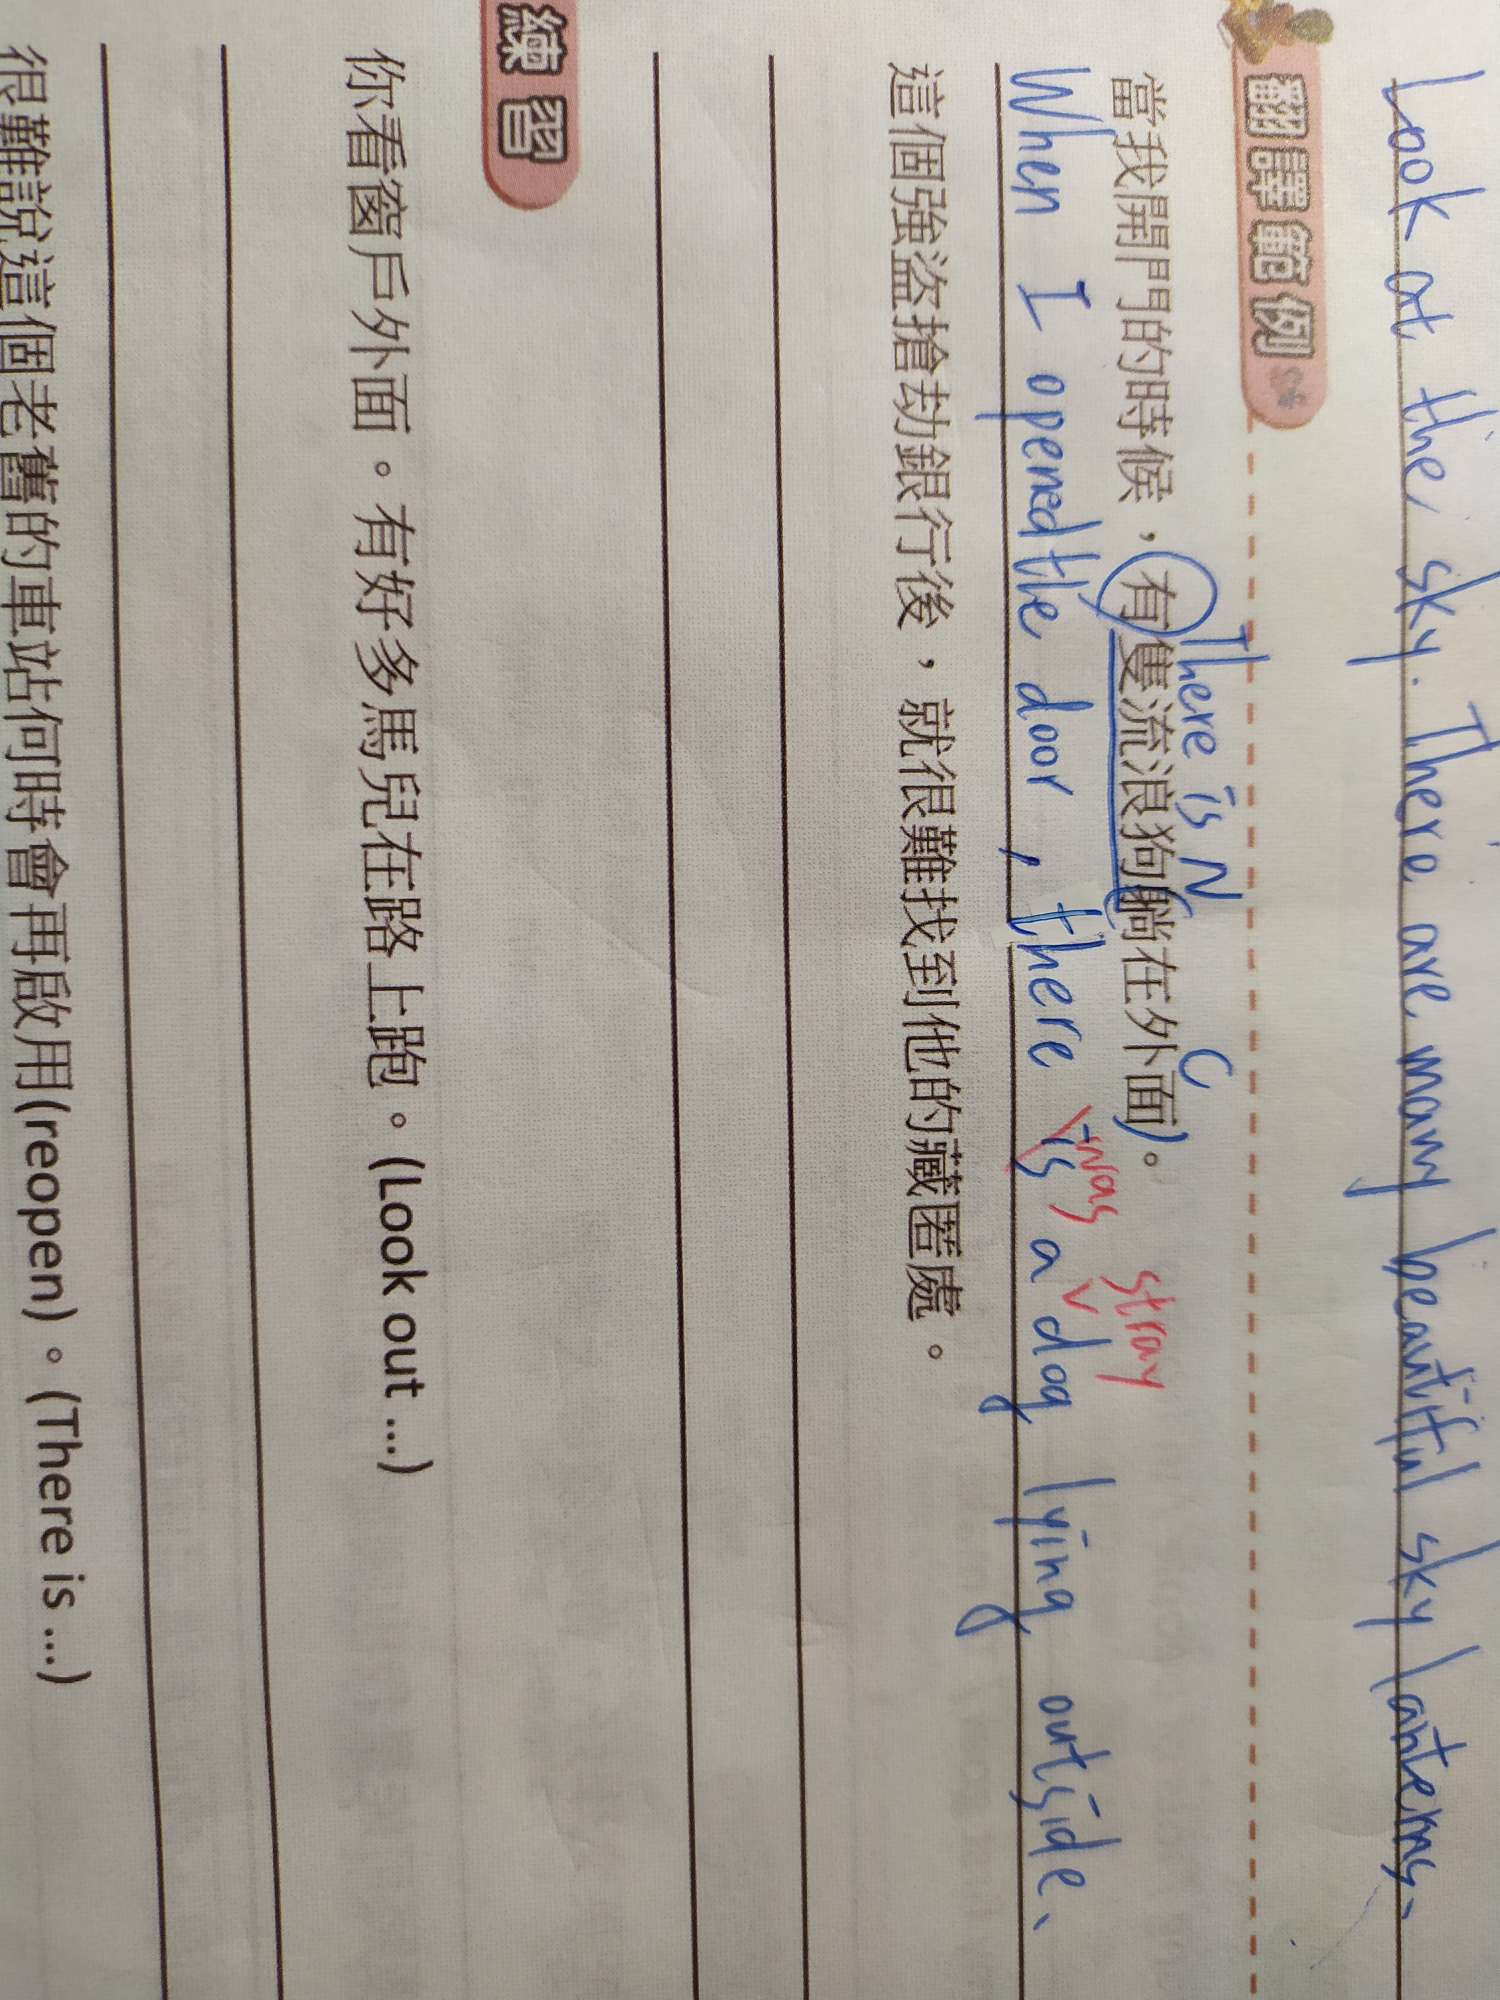 Look at the sky. There are many beautiful sky lanterns.
翻譯範例
There is N C
當我開門的時候，有隻流浪狗躺在外面。
was stray
When I opened the door, there is a dog lying outside.
這個強盜搶劫銀行後，就很難找到他的藏匿處。
練習
你看窗戶外面。有好多馬兒在路上跑。(Look out ...)
很難說這個老舊的車站何時會再啟用(reopen)。(There is ...)